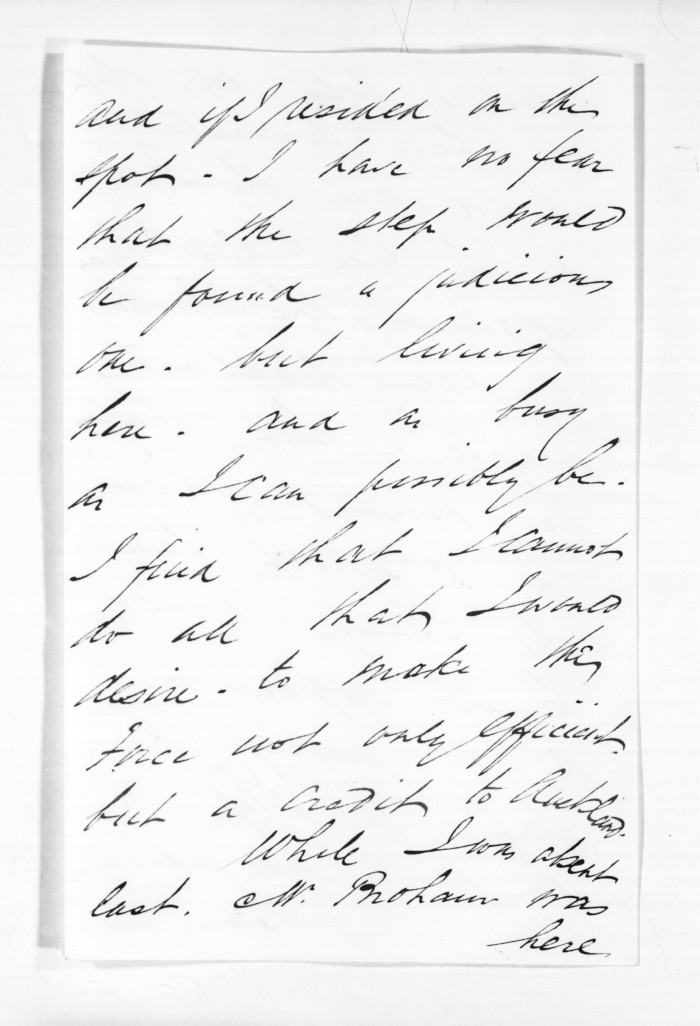 and if I resided on the
spot - I have no fear
that the step would
be found a judicious
one - but living
here - and as busy
as I can possibly be -
I find that I cannot
do all that I would
desire - to make this
Force not only efficient
but a credit to Auckland.
While I was absent
last. Mr. was
here